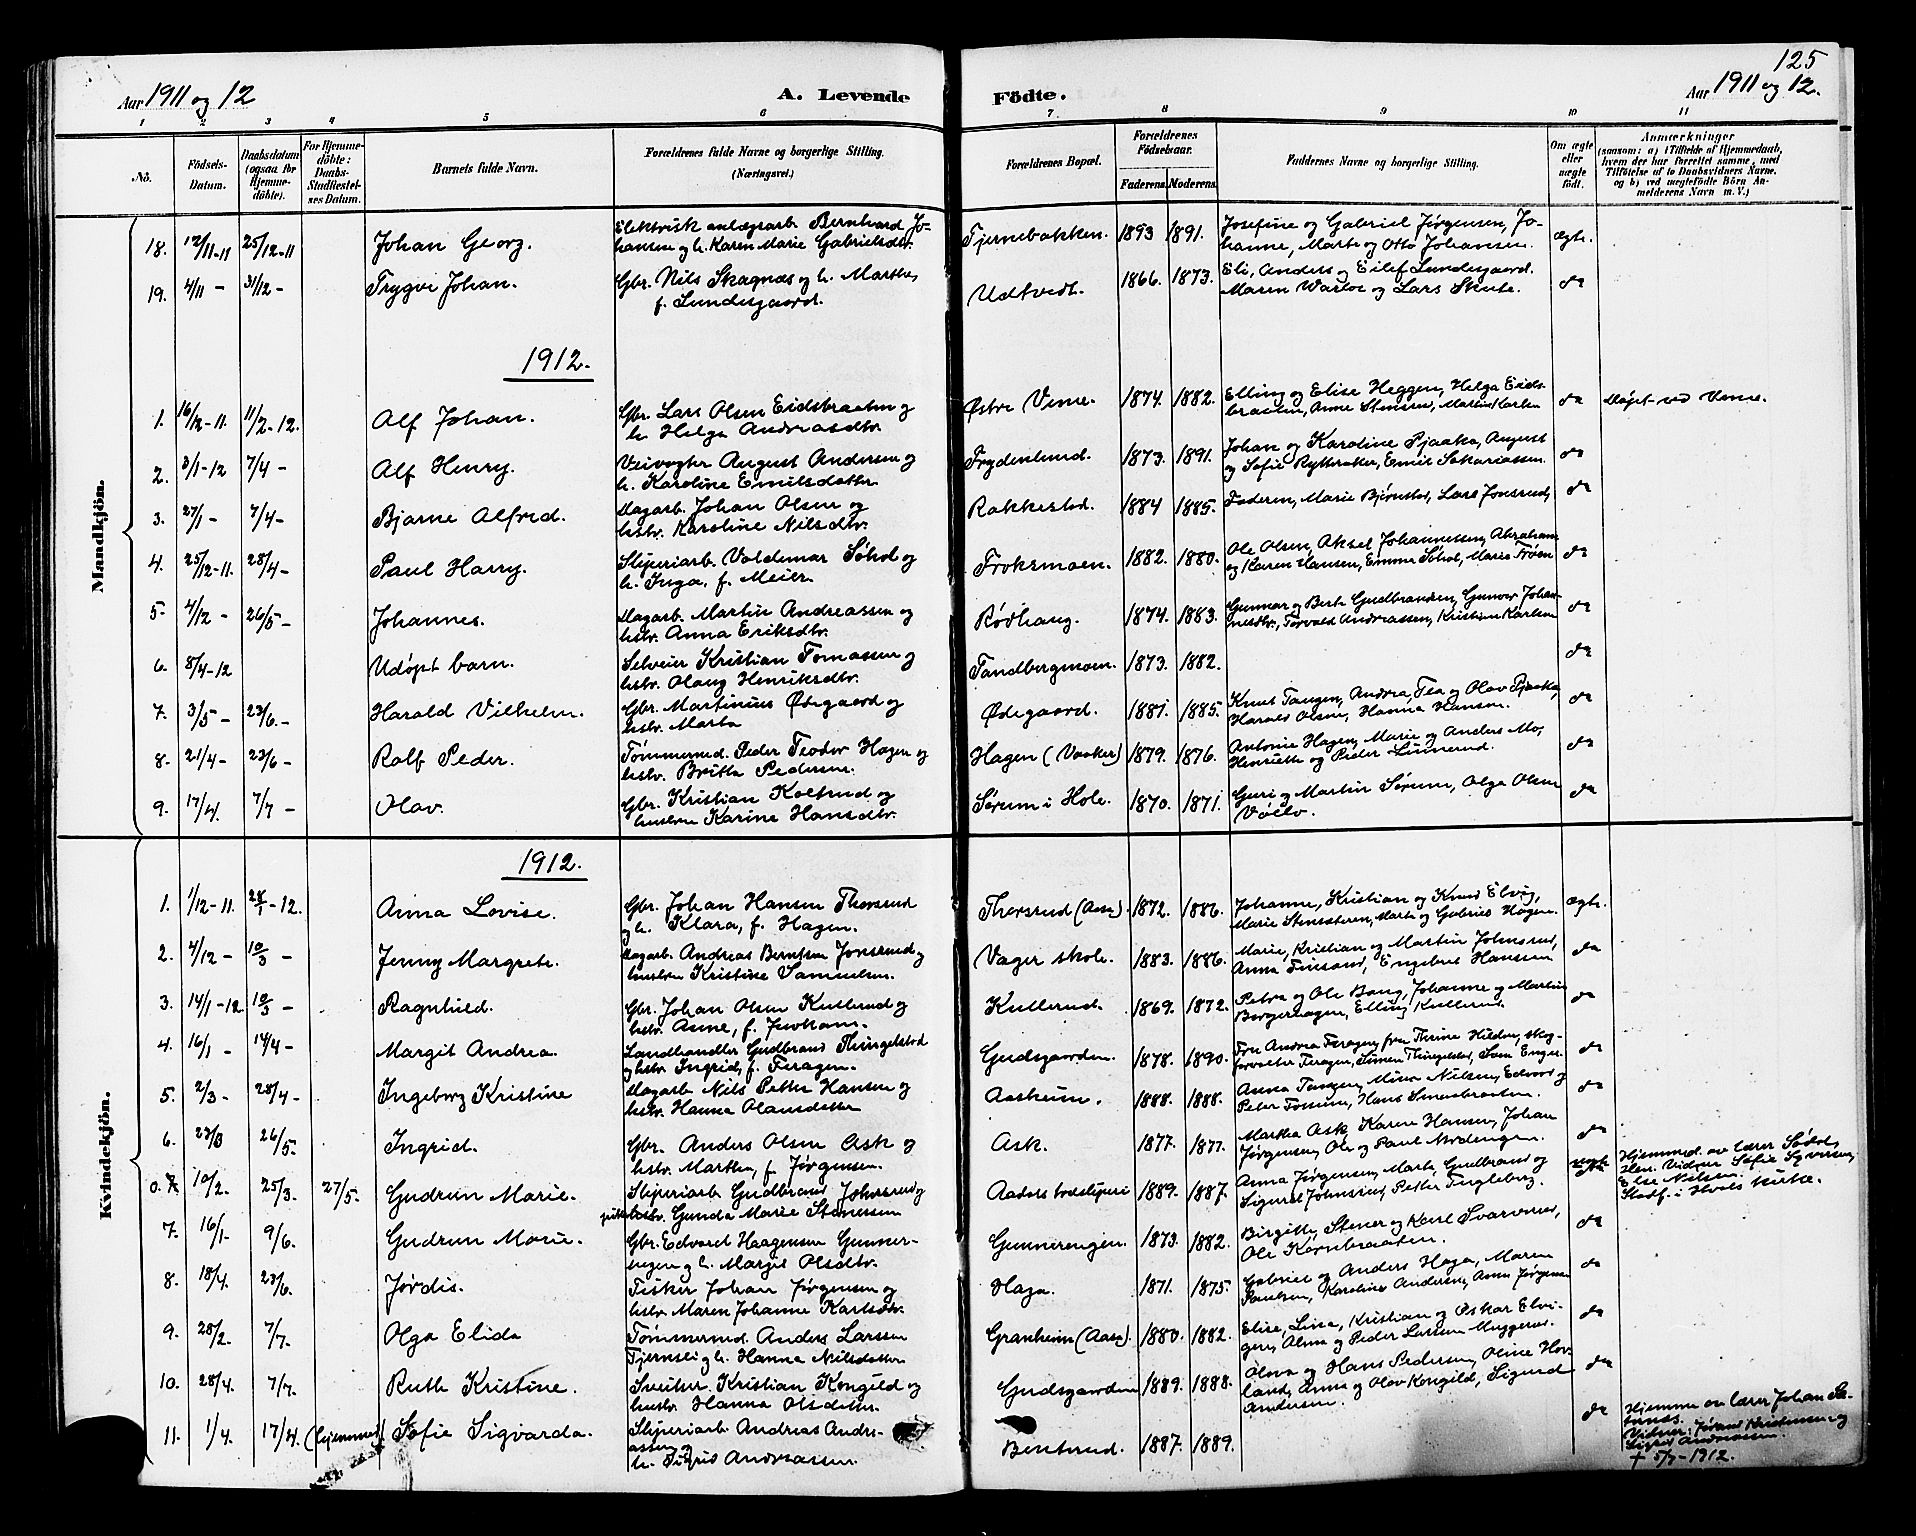 125
Aar 1911 og 12
A. Levende
Födte.
Aar 1911 og 12.
1 2 3 4 5 6 7 8 9 10 11
No.
Födsels-Datum.
Daabsdatum (ogsaa for Hjemmedöbte).
For Hjemmedöbte: Daabs-Stadfæstelses Datum.
Barnets fulde Navn.
Forældrenes fulde Navne og borgerlige Stilling. (Næringsvei.)
Forældrenes Bopæl.
Forældrenes Födselsaar.
Faderens. Moderens.
Faddernes Navne og borgerlige Stilling.
Om ægte eller uægte födt.
Anmærkninger
(saasom: a) i Tilfælde af Hjemmedaab, hvem der har forrettet samme, med Tilföielse af to Daabsvidners Navne, og b) ved uægtefödte Börn Anmelderens Navn m. V.)
Mandkjön.
18. 12/11-11 25/12-11 Johan Georg. Elektrisk anlægsarb. Bernhard Jo-
hansen og h. Karen Marie Gabrielsdtr. Tjernebakken. 1893 1891. Josefine og Gabriel Jørgensen, Jo-
hanne, Marte og Otto Johansen. ægte.
19. 4/11 - 31/12 - Trygve Johan. Gbr. Nils Skagnæs og h. Marthe,
f. Lundesgaard. Udtvedt. 1866. 1873. Eli, Anders og Eilef Lundesgaard.
Maren Warloe og Lars Skute. do
1912.
1. 16/12-11. 11/2-12. Alf Johan. Gbr. Lars Olsen Eidsbraaten og
h. Helga Andreasdtr. Østre Veme. 1874. 1882. Elling og Elise Heggen, Helga Eids-
braaten, Anne Stensrud, Martin Karlsen do Døpt ved Veme.
2. 3/1-12 7/4 - Alf Henry. Veivogter August Andersen og
h. Karoline Emilsdatter Frydenlund. 1873. 1891. Johan og Karoline Pjaaka, August
og Sofie Rytteraker, Emil Sakariassen. do
3. 27/1 - 7/4 - Bjarne Alfred. Dagarb. Johan Olsen og
hstr. Karoline Nilsdtr. Rakkestad. 1884 1885. Faderen, Marie Bjørnstad, Lars Jonsrud, do
4. 25/12-11. 28/4 - Paul Harry. Sliperiarb. Valdemar Søhol og
h. Inga, f. Meier. Froksmoen. 1882. 1880. Ole Olsen, Aksel Johannessen, Abraham
og Karen Hansen, Emma Søhol, Marie Frøen do
5. 4/12 - 26/5 - Johannes. Dagarb. Martin Andreassen og
hstr. Anna Eriksdtr. Rødhaug. 1874. 1883. Gunnar og Berte Gudbrandsen, Gunvor Johan-
nesdtr., Torvald Andreassen, Kristian Karlsen do
6. 8/4-12 Udøpt barn. Selveier Kristian Tomassen og
hstr. Olaug Henriksdtr. Tandbergmoen. 1873. 1882. do
7. 3/5 - 23/6 - Harald Vilhelm. Gbr. Martinius Ødegaard og
hstr. Marta Ødegaard. 1881. 1885. Knut Tangen, Andrea, Tea og Olav Pjaaka,
Harald Olsen, Hanna Hansen. do
8. 21/4 - 23/6 - Ralf Peder. Tømmermd. Peder Teodor Hagen og
hstr. Britha Pedersen. Hagen (Vaaker) 1879. 1876. Antonie Hagen, Marie og Anders Mo,
Henriette og Peder Linnerud. do
9. 17/4. 7/7 - Olav. Gbr. Kristian Kolsrud og
hustru Karine Hansdtr. Sørum i Hole. 1870. 1871. Guri og Martin Sørum, Olga Olsen
Vøllo. do
Kvindekjön.
1912.
1. 1/12-11. 28/1-12. Anna Lovise. Gbr. Johan Hansen Thorsrud
og h. Klara, f. Hagen. Thorsrud (Aasa) 1872. 1886. Johanne, Kristian og Knud Elvig,
Marie Stensæteren, Marte og Gabriel Hagen. ægte.
2. 4/12 - 10/3 - Jenny Margrete. Dagarb. Andreas Berntsen Jonsrud og
hustru Kristine Samuelsen. Vager skole. 1883. 1886. Marie, Kristian og Martin Johnsrud,
Anna Finsand, Engebret Hanssen do
3. 14/1-12 10/3 - Ragnhild. Gbr. Johan Olsen Kullerud og
hstr. Anne, f. Juvkam. Kullerud. 1869. 1872. Petra og Ole Bang, Johanne og Martin
Borgerhagen, Elling Kullerud do
4. 16/1 - 14/4 - Margit Andrea. Landhandler Gudbrand Thingelstad
og hstr. Ingrid, f. Feragen. Gudsgaarden. 1878. 1890. Fru Andrea Feragen, fru Thrine Hilden, skog-
forvalter Feragen, Simen Thingelstad, Sam Enger do
5. 2/3 - 28/4 - Ingeborg Kristine Dagarb Nils Petter Hansen og
hstr. Hanna Olausdatter Aaskum. 1888. 1888. Anna Tangen, Mina Nilsen, Edvard og
Peter Fossum, Hans Smedbraaten. do
6. 23/3 26/5. Ingrid. Gbr. Anders Olsen Ask og
hstr. Marthea, f. Jørgensen. Ask. 1877. 1877. Martha Ask, Karen Hansen, Johan
Jørgensen, Ole og Paul Mo. do
0.7 10/2. 25/3. 27/5. Gudrun Marie. Sliperiarb Gudbrand Johnsrud og
pike Gunda Marie Stenersen Aadals træsliperi 1889. 1887. Anna Jørgensen, Marte, Gudbrand og
Sigurd Johnsrud, Petter Tingleborg. uegte Hjemmed. av lærer Sødol,
Hen. Vidner Sofie Syversen,
Else Nilsen.
Stadf. i Hvals kirke.
7. 16/1. 9/6. Gudrun Marie. Gbr. Edvard Haagensen Gunner-
engen og h. Margit Olsdtr. Gunnerengen. 1873. 1882. Birgitte, Stener og Karl Svarverud,
Ole Kornbraaten. do
8. 18/4. 23/6. Jørdis. Fisker Johan Jørgensen og
hstr. Maren Johanne Karlsdtr. Haga. 1871. 1875. Gabriel og Anders Haga, Maren
Paulsen, Karoline Andersen, Anna Jørgensen do
9. 28/2. 7/7. Olga Elida Tømmermd. Anders Larssen
Tjernsli og h. Hanna Nilsdatter Granheim (Aasa). 1880. 1882. Elise, Lina, Kristian og Oskar Elvi-
gen, Alma og Peder Larssen Muggerud. do
10. 28/4. 7/7. Ruth Kristine. Sveitser. Kristian Kongild og
hustru Hanna Olsdatter. Gudsgaarden 1889. 1888. Olava og Hans Pedersen, Oline Hov-
land, Anna og Olav Kongild, Sigurd
Andersen. do
11. 1/4. 17/4. (hjemmet) Sofie Sigvarda. Sliperiarb Andreas Andre-
assen og
h. Sigrid Andreassen. Benterud. 1887. 1889. do Hjemme av lærer Johan Sæ-
ternæs.
Vidner: Jørand Kristensen og
Sigrid Andreassen.
† 5/7-1912.